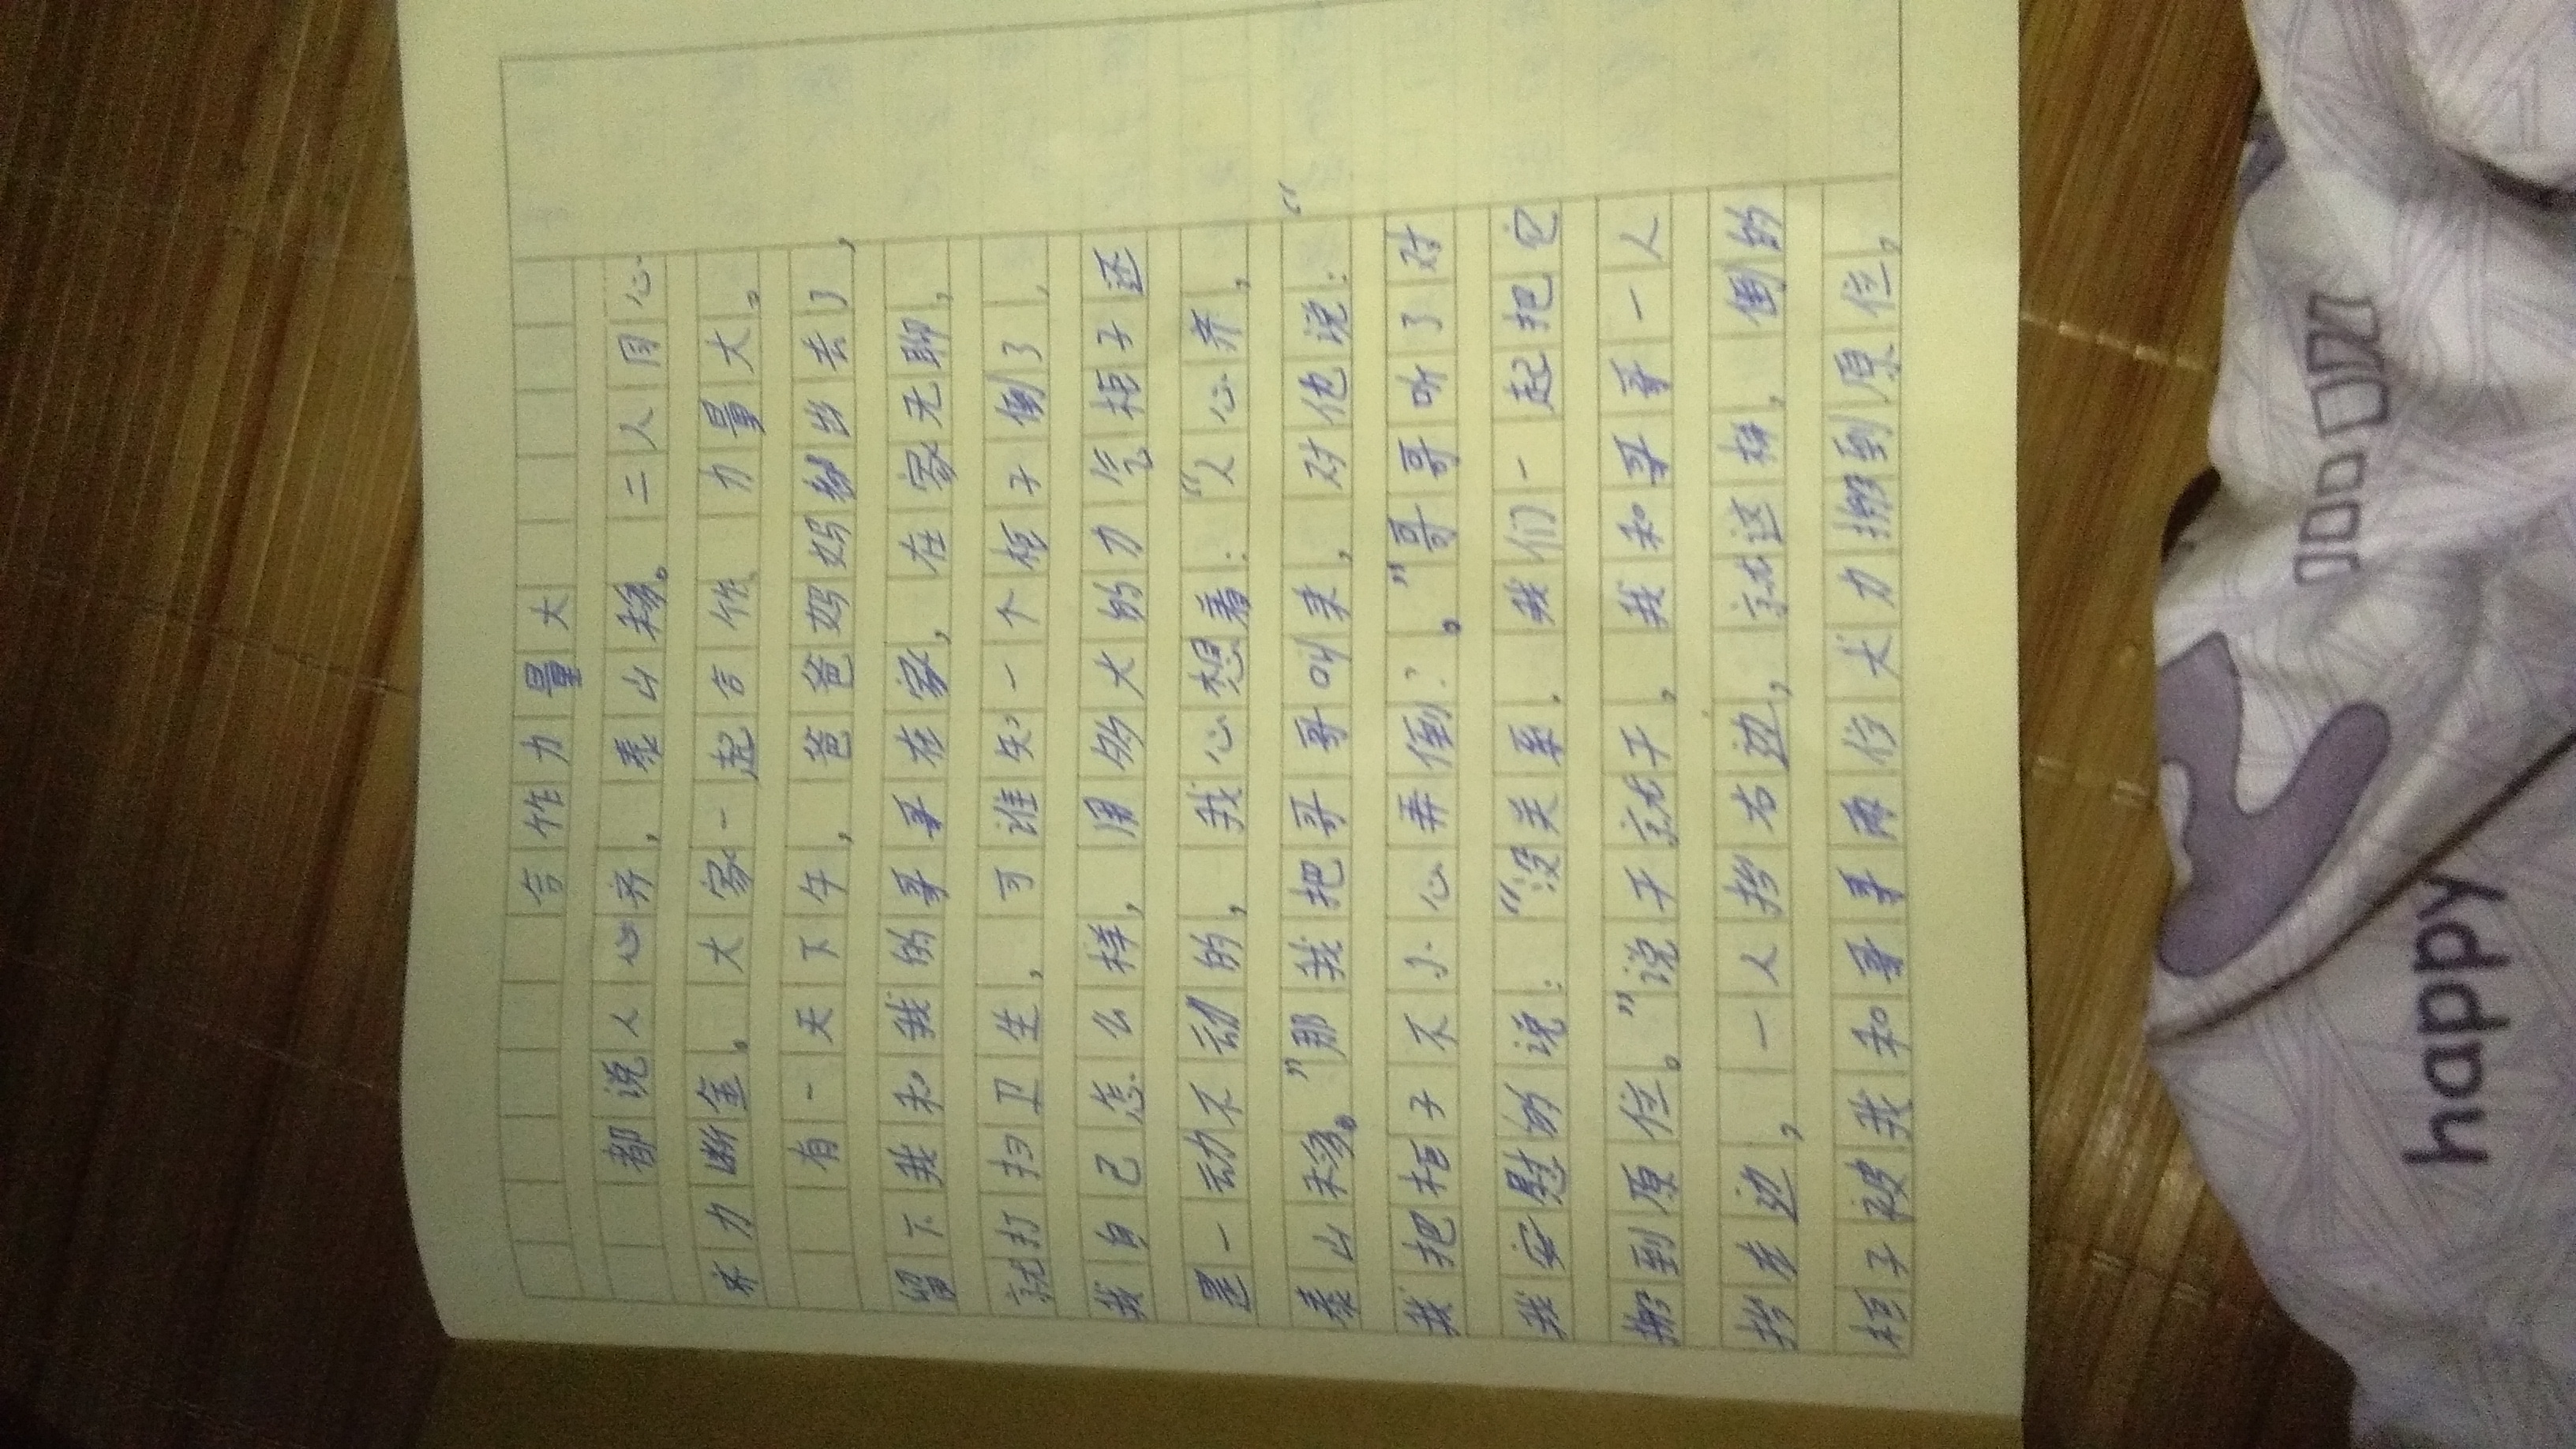 合作力量大
都说人心齐，泰山移。二人同心
齐力断金。大家一起合作力量大。
有一天下午，爸爸妈妈都出去了，
留下我和我的哥哥在家，在家无聊，
就打扫卫生，可谁知一个柜子倒了，
我自己怎么样，用多大的力气柜子还
是一动不动的，我心想着：“人心齐，
泰山移。”那我把哥哥叫来，对他说：“
我把柜子不小心弄倒？。”哥哥听了对
我安慰的说：“没关系，我们一起把它
搬到原位。”说干就干，我和哥哥一人
抬左边，一人抬右边，就这样，倒的
柜子被我和哥哥用大力搬到原位，
happy